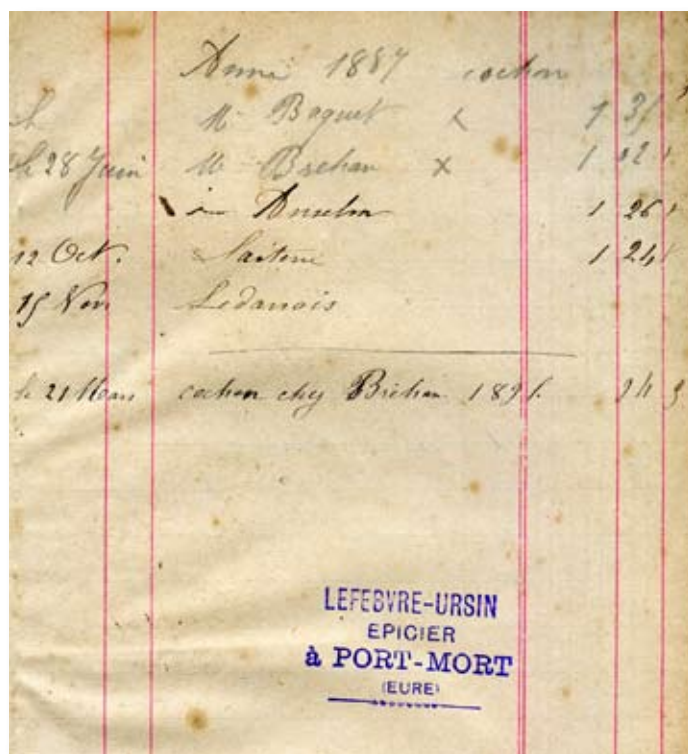 Anné 1887 cochon
le Mr Boquet x 1
le 28 Juin Mr Bréhan x 1 02
Anselm 1 26
12 Oct. 1 24
15 Nov Ledanois
le 21 Mars cochon chez Bréhan 1891.
LEFEBVRE-URSIN
EPICIER
à PORT-MORT
(EURE)